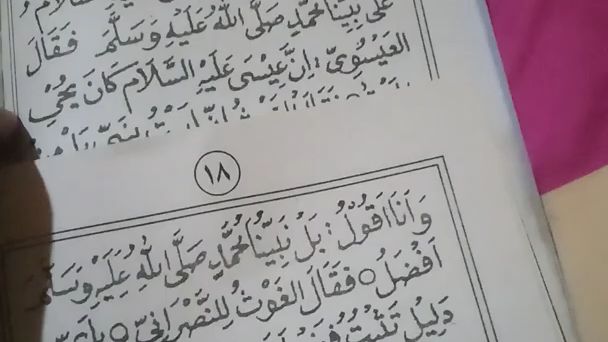 عَلَى نَبِيِّنَا مُحَمَّدٍ صَلَّى اللهُ عَلَيْهِ وَسَلَّمَ فَقَالَ
الْعِيْسَوِيُّ : اِنَّ عِيْسَى عَلَيْهِ السَّلَامُ كَانَ يُحْيِ
١٨
وَاَنَا اَقُوْلُ : بَلْ نَبِيُّنَا مُحَمَّدٌ صَلَّى اللهُ عَلَيْهِ وَسَلَّمَ
اَفْضَلُ ○ فَقَالَ الْغَوْثُ لِلنَّصْرَانِيِّ ○ بِاَيِّ
دَلِيْلٍ تُثْبِتُ